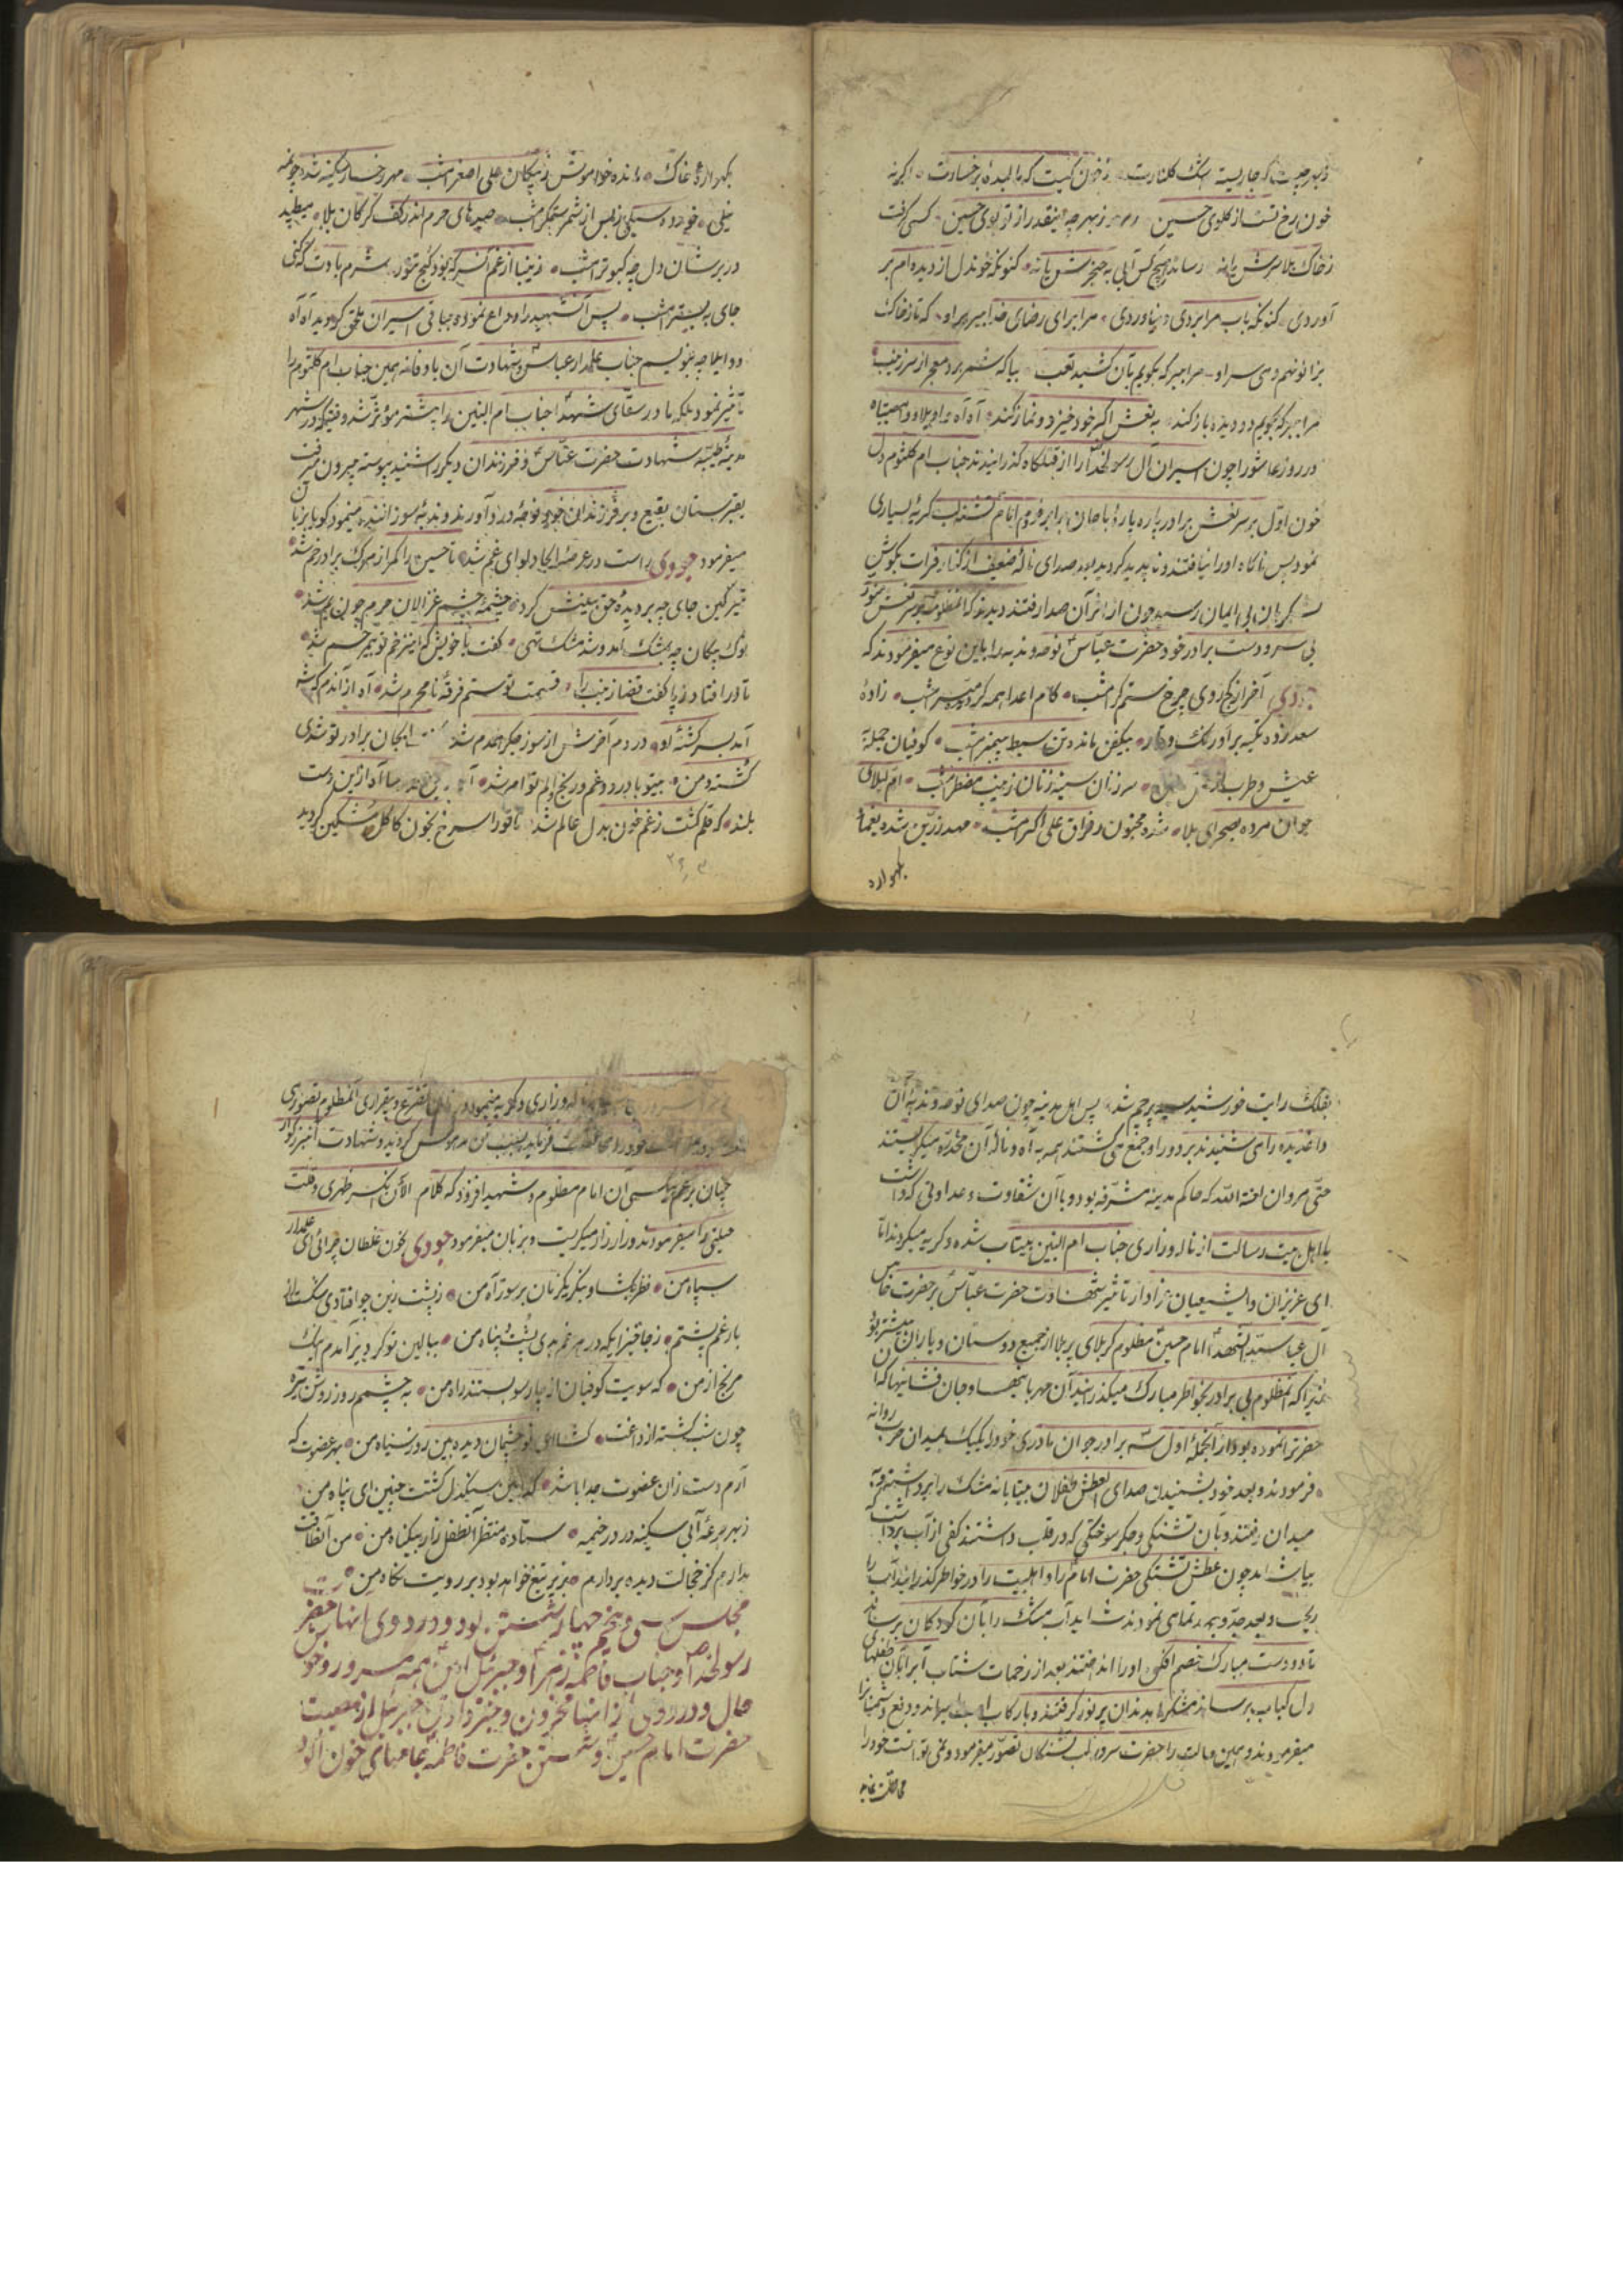 خون رخ تست از گلوی حسین زبهر چه اینقدر از تو بوی حسین کسی نرفت
زخاک بلا سرش یا نه رساند هیچ کس آبی به حنجرش یا نه کنونکه خوندل از دیده‌ام بر
آوردی کنونکه باب مرا بردی و نیاوردی مرا برای رضای خدا ببر بر او که تا زخاک
بزانو نهم دمی سر او مرا ببر که بگویم بآن کشیده تعب بیا که شمر برد معجر از سر زینب
مرا ببر که بگویم دو دیده باز کند به نعش اکبر خود خیزد و نماز کند آه آه واویلا وا مصیبتاه
در روز عاشورا چون اسیران آل رسولخدا را از قتلگاه گذرانیدند جناب ام کلثوم دل
خون اول بر سر نعش برادر پاره پاره با جان برابر خود امام تشنه لب گریه بسیاری
نمود پس ناگاه او را نیافتند و ناپدید گردید بود صدای ناله ضعیف از کنار فرات بگوش
گریان بی ایمان رسید چون از اثر آن صدا رفتند دیدند که آنمظلومه بر سر نعش
بی سر و دست برادر خود حضرت عباس نوحه و ندبه را باین نوع میفرمودند که
جودی آخر از کج روی چرخ ستمگر امشب کام اعدا همه گردید میسر امشب زاده
سعد زده تکیه بر اورنک وقار بیکفن مانده تن سبط پیمبر امشب کوفیان جمله
عیش و طرب سر زنان سینه زنان زینب مضطر امشب ام لیلای
جوان مرده بصحرای بلا شده مجنون و فراق علی اکبر امشب مهد زرین شده یغما
بگهواره
بگهواره خاک مانده خاموش ز پیکان علی اصغر امشب مهر رخسار سکینه شده چون مه
نیلی خورده سیلی ز بس از شمر ستمگر امشب صیدهای حرم اندر کف گرگان بلا میطپد
در برشان دل چه کبوتر امشب زینبا از غم آنسر که بود کنج تنور شرم بادت که کنی
جای به بستر امشب پس آنشهید را وداع نموده بباقی اسیران ملحق گردید آه آه
واویلا چه بنویسم جناب علمدار عباس و شهادت آن باوفا نه همین جناب ام کلثوم را
تأثیر نمود بلکه مادر سقای شهدا جناب ام البنین را بیشتر مؤثر شد وقتیکه در شهر
مدینه طیبه شهادت حضرت عباس و فرزندان دیگر را شنید پیوسته بیرون میرفت
بقبرستان بقیع و بر فرزندان خود نوحه و درد آور و ندبه سوزاننده مینمود گویا بزبان
میفرمود جودی راست در عرصه ایجاد لوای غم شد تا حسین را کمر از مرگ برادر خم شد
تیر کین جای چه بر دیده حق بینش کرد چشمه چشم غزالان حرم چون یم شد
نوک پیکان چه بمشک آمد و شد مشک تهی گفت با خویش که این زخم تو بیمرهم شد
تا در افتاد ز پا گفت قضا زینب را قسمت تو ستم فرقه نامحرم شد آه از آندم که شه
آمد بسر کشته او در دم آخرش از سوز جگر همدم شد ایجان برادر تو شدی
کشته و من بیتو با درد و غم و رنج و الم توام شد
بلند که قلم گشت ز غم خون بدل عالم شد تا تو را سرخ بخون کاکل مشکین گردید
بفلک رایت خورشید سیه پرچم شد پس اهل مدینه چون صدای نوحه و ندبه آن
داغدیده را می شنیدند بر دور او جمع می گشتند همه به آه و ناله آن مخدره میگریستند
حتی مروان لعنة الله که حاکم مدینه مشرفه بود و با آن شقاوت و عداوتی که داشت
با اهل بیت رسالت از ناله و زاری جناب ام البنین بیتاب شده و گریه میکردند اما
ای عزیزان و ای شیعیان زاوار تأثیر شهادت حضرت عباس بر حضرت خامس
آل عبا سید الشهدا امام حسین مظلوم کربلای پر بلا از جمیع دوستان و یاران بیشتر بود
زیرا که آنمظلوم بی برادر بخواطر مبارک میگذرانید آن مهربانیها و جان فشانیها که آن
حضرت نموده بود از آنجمله اول سه برادر جوان مادری خود را یک یک بمیدان حرب روانه
فرمودند و بعد خود بشنیدن صدای العطش طفلان بیتابانه مشک را برداشته به
میدان رفتند و بآن تشنگی و جگر سوختگی که در قلب داشتند کفی از آب برداشت که
بیاشامد چون عطش تشنگی حضرت امام را و اهلبیت را در خواطر گذرانید آب را
ریخت و بعد جد و جهد تمامی نمودند شاید آب مشک را بآن کودکان برساند
تا دو دست مبارک خصم افکن او را انداختند بعد از زحمات شتاب آب را بآن طفلهای
دل کباب برساند مشک را بدندان پر نور گرفتند و با رکاب
میفرمودند و همین حالت را حضرت سرور لب تشنگان تصور میفرمود و نمی توانست خود را
محافظت نماید
ناله و زاری و گریه مینمود تضرع و بیقراری آنمظلوم تصوری
چنان بر غم بیکسی آن امام مظلوم و شهید افزود که کلام الآن انکسر ظهری و قلت
حیلتی را میفرمودند و زار زار میگریست و بزبان میفرمود جودی بخون غلطان چرائی ای علمدار
سپاه من نظر بگشا و بنگر یکزمان بر سوز آه من ز پشت زین چو افتادی شکست از
بار غم پشتم ز جا خیز ایکه در هر غم بدی پشت و پناه من ببالین تو گر دیر آمدم یک
مرنج از من که سویت کوفیان از چارسو بستند راه من به چشمم روز روشن تیره
چون شب گشته از داغت گشا ای نور چشمان دیده بین روز سیاه من بهر عضوت که
آرم دست زان عضوت جدا باشد که امین سنگدل کشتت چنین ای پناه من
ز بهر جرعه آبی سکینه در در خیمه ستاده منتظر آنطفل زار بیگناه من من آنطاقت
ندارم کز خجالت دیده بردارم بزیر تیغ خواهد بود بر رویت نگاه من
مجلس سی و پنجم چهار شستن بود و در دوی اینها حضرت
رسولخدا و جناب فاطمه زهرا و جبرئیل امین همه مسرور و خوش
حال و در دوی از اینها محزون و جبرئیل از مصیبت
حضرت امام حسین و شستن حضرت فاطمه جامهای خون آلود